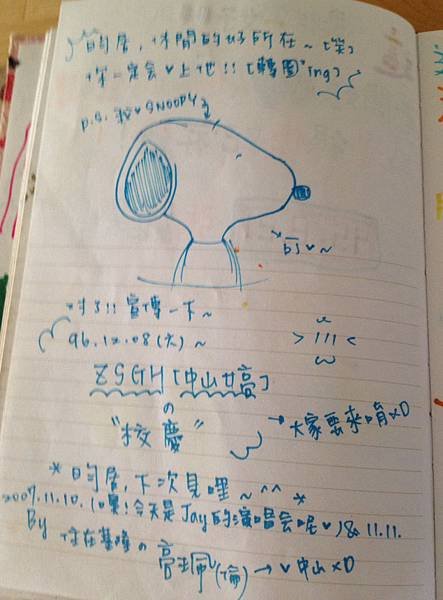 的居,休閒的好所在~(笑)
你一定會♥上他!![轉圈ing]
P.S. 我♥SNOOPY
by ♥~
對了!!宣傳一下~
96.12.08(六)~
> 111 <
ω
ZSGH[中山女高]
の
"校慶"
→大家要來唷XD
*日昀居,下次見哩~^^*
2007.11.10.(噢!今天是Jay的演唱会呢♥)& 11.11.
By 住在基隆の
→♥中山XD